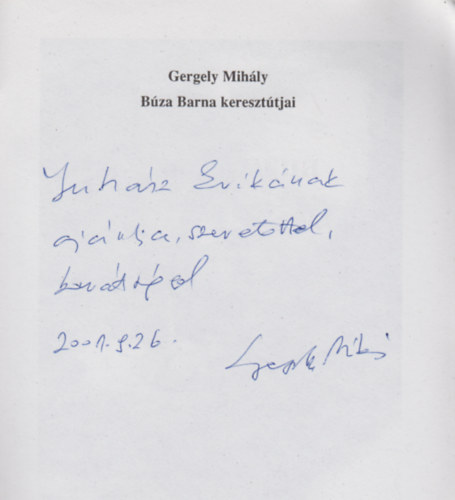 Gergely Mihály
Búza Barna keresztútjai
Juhász Erikának
ajánlja, szeretettel,
barátsággal
2001. 9. 26.
Gergely Mihály